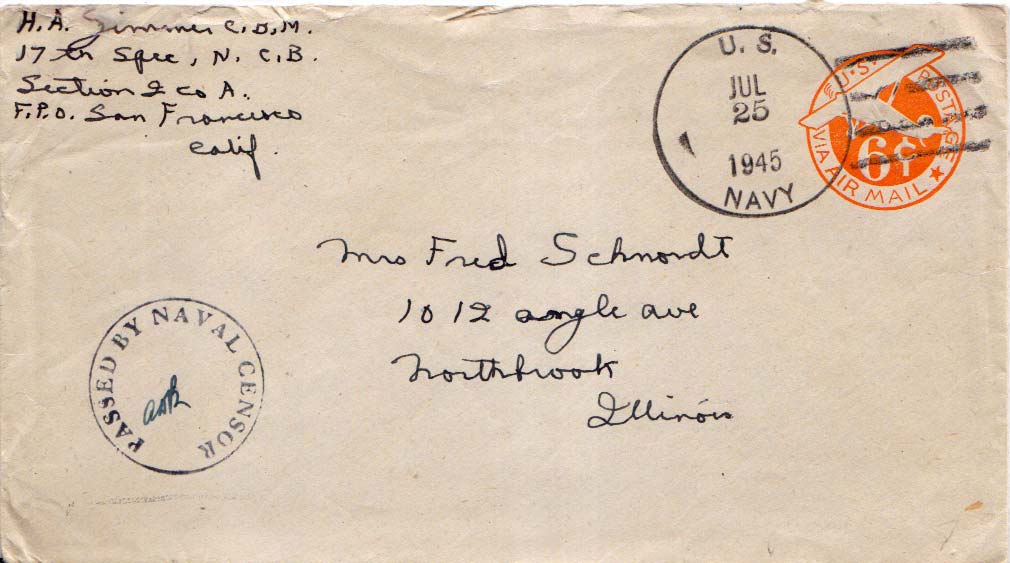 H.A. Zimmer C.B.M.
17th Spec, N. C.B.
Section 2 Co A.
F.P.O. San Francisco
Calif.
U. S.
JUL
25
1945
NAVY
U.S. POSTAGE
6¢
VIA AIR MAIL
Mrs Fred Schmordt
1012 angle ave
Northbrook
Illinois
PASSED BY NAVAL CENSOR